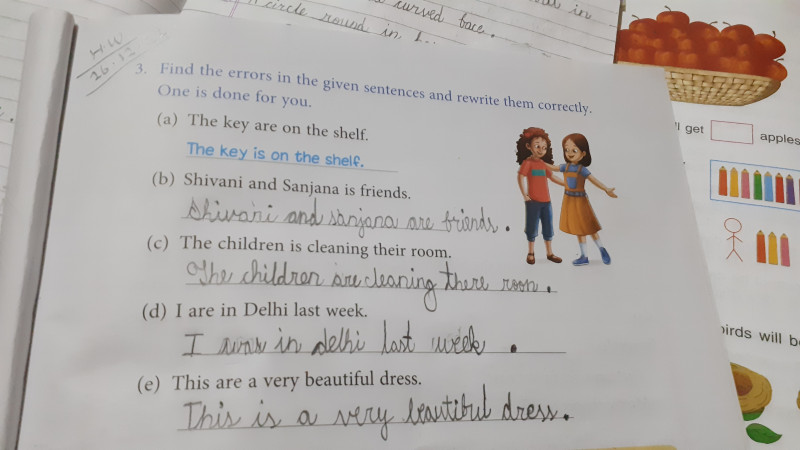 curved face.
circle round in
in
H.W
26.12
3. Find the errors in the given sentences and rewrite them correctly.
One is done for you.
(a) The key are on the shelf.
The key is on the shelf.
(b) Shivani and Sanjana is friends.
Shivani and sanjana are friends.
(c) The children is cleaning their room.
The children are cleaning there room.
(d) I are in Delhi last week.
I was in delhi last week.
(e) This are a very beautiful dress.
This is a very beautiful dress.
get apples
birds will